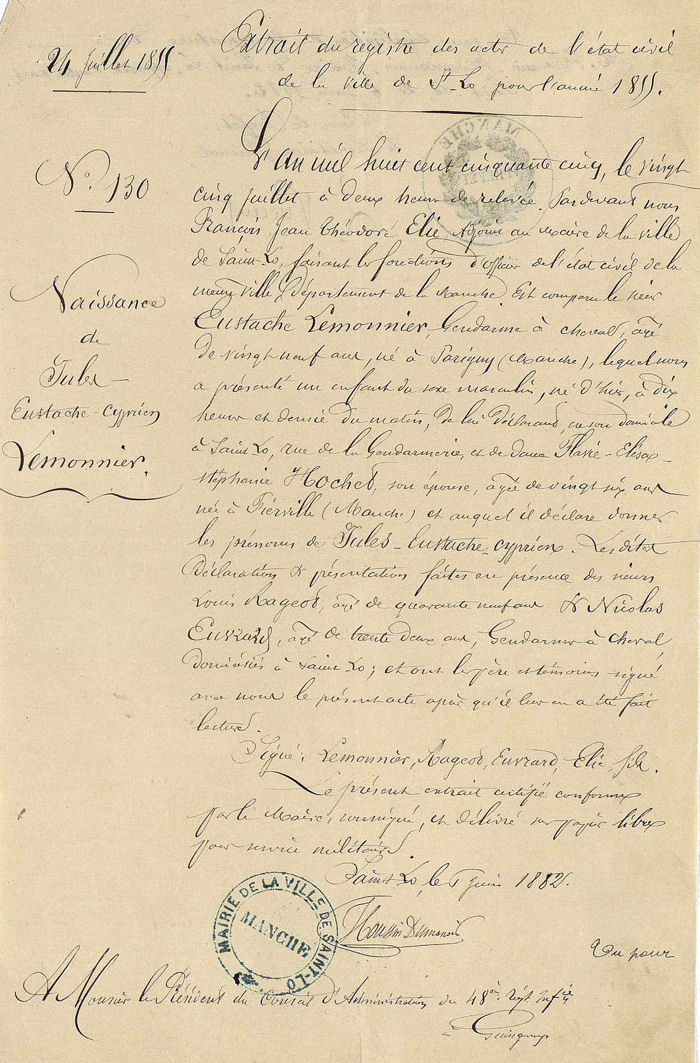 24 Juillet 1855
Extrait du registre des actes de l'état civil
de la ville de St-Lo pour l'année 1855.
N° 130
Naissance
de
Jules-
Eustache-Cyprien
Lemonnier.
L'an mil huit cent cinquante cinq, le vingt
cinq juillet à deux heures de relevée. Pardevant nous
François Jean Théodore Elie adjoint au Maire de la ville
de Saint-Lo, faisant les fonctions d'officier de l'état civil de la
même ville (département de la Manche) Est comparu le sieur
Eustache Lemonnier, Gendarme à cheval, âgé
de vingt neuf ans, né à Parigny (Manche), lequel nous
a présenté un enfant du sexe masculin, né d'hier, à dix
heures et demie du matin, de lui déclarant, en son domicile
à Saint-Lo, rue de la Gendarmerie, et de dame Flavie-Elisa-
Stéphanie Hochet, son épouse, âgée de vingt six ans
née à Fierville (Manche) et auquel il déclare donner
les prénoms de Jules-Eustache-Cyprien. Les dites
déclaration & présentation faites en présence des sieurs
Louis Rageot, âgé de quarante neuf ans & Nicolas
Euvrard, âgé de trente deux ans, Gendarmes à cheval,
domiciliés à Saint-Lo; et ont les père et témoins signé
avec nous le présent acte après qu'il leur en a été fait
lecture.
Signé: Lemonnier, Rageot, Euvrard, Elie fils.
Le présent extrait certifié conforme
par le Maire, soussigné, et délivré sur papier libre
pour service militaire.
Saint-Lo, le 6 Juin 1882.
MAIRIE DE LA VILLE DE SAINT-LO
MANCHE
Vu pour
A Monsieur le Président du Conseil d'Administration du 48ème Régt Infie
à Guingamp